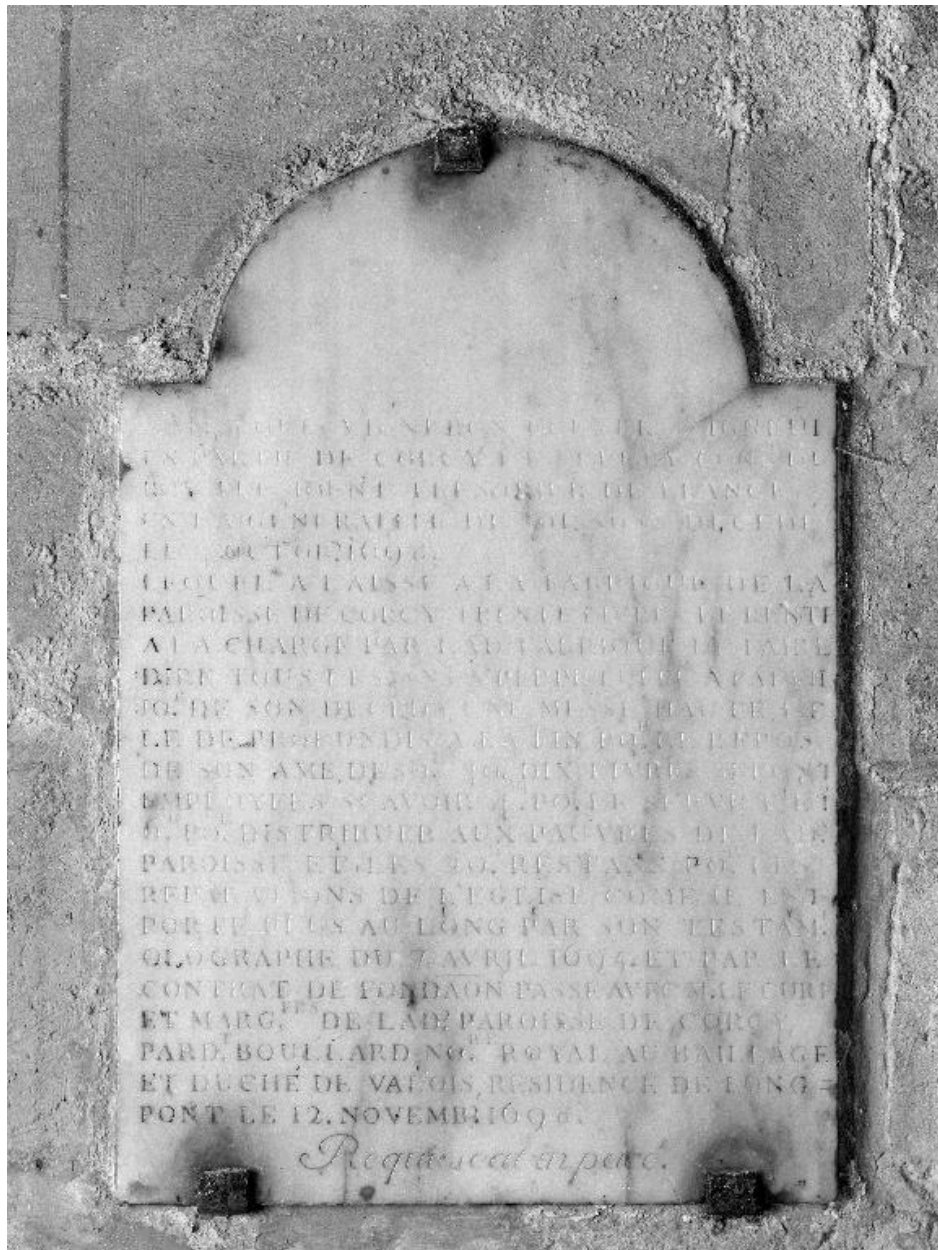 EN PARTIE DE CORCY
DE FRANCE
EN LA GENERALITE DE SOISSONS DECEDE
LE OCTOB. 1696.
LEQUEL A LAISSÉ A LA FABRIQUE DE LA
PAROISSE DE CORCY TRENTE LIVRES DE RENTE
A LA CHARGE PAR LAD. FABRIQUE DE FAIRE
DIRE TOUS LES ANS A PERPETUITÉ A PAREIL
JO. DE SON DECEDS UNE MESSE HAUTE
LE DE PROFUNDIS A LA FIN PO. LE REPOS
DE SON AME, DESQ. 30. DIX LIVRES SERONT
EMPLOYEES SCAVOIR 4. PO. LE
6. PO. DISTRIBUER AUX PAUVRES DE LAD.
PAROISSE ET LES 20. RESTANS PO. LES
REPARATIONS DE L'EGLISE COME IL EST
PORTÉ PLUS AU LONG PAR SON TESTAM.
OLOGRAPHE DU 7. AVRIL 1694. ET PAR LE
CONTRAT DE FONDAON PASSÉ AVEC M. LE CURE
ET MARG.ERS DE LAD. PAROISSE DE CORCY,
PARD.T BOULLARD NO.RE ROYAL AU BAILLAGE
ET DUCHÉ DE VALOIS, RESIDENCE DE LONG=
PONT LE 12. NOVEMB. 1696.
Requiescat in pace.